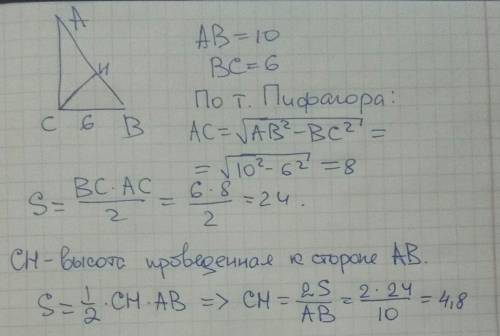 A
H
C 6 B
AB = 10
BC = 6
По т. Пифагора:
AC = √(AB² - BC²) =
= √(10² - 6²) = 8
S = BC · AC / 2 = 6 · 8 / 2 = 24.
CH - высота проведенная к стороне AB.
S = 1/2 · CH · AB => CH = 2S / AB = 2 · 24 / 10 = 4,8